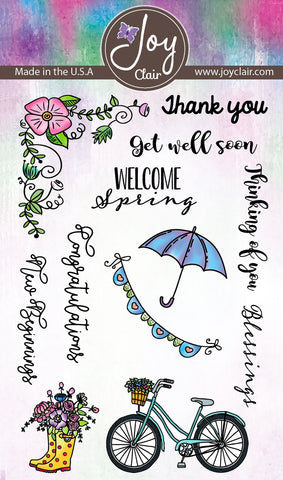 Joy
Clair
Made in the U.S.A
www.joyclair.com
Thank you
Get well soon
WELCOME
Spring
Thinking of you
Congratulations
New Beginnings
Blessings